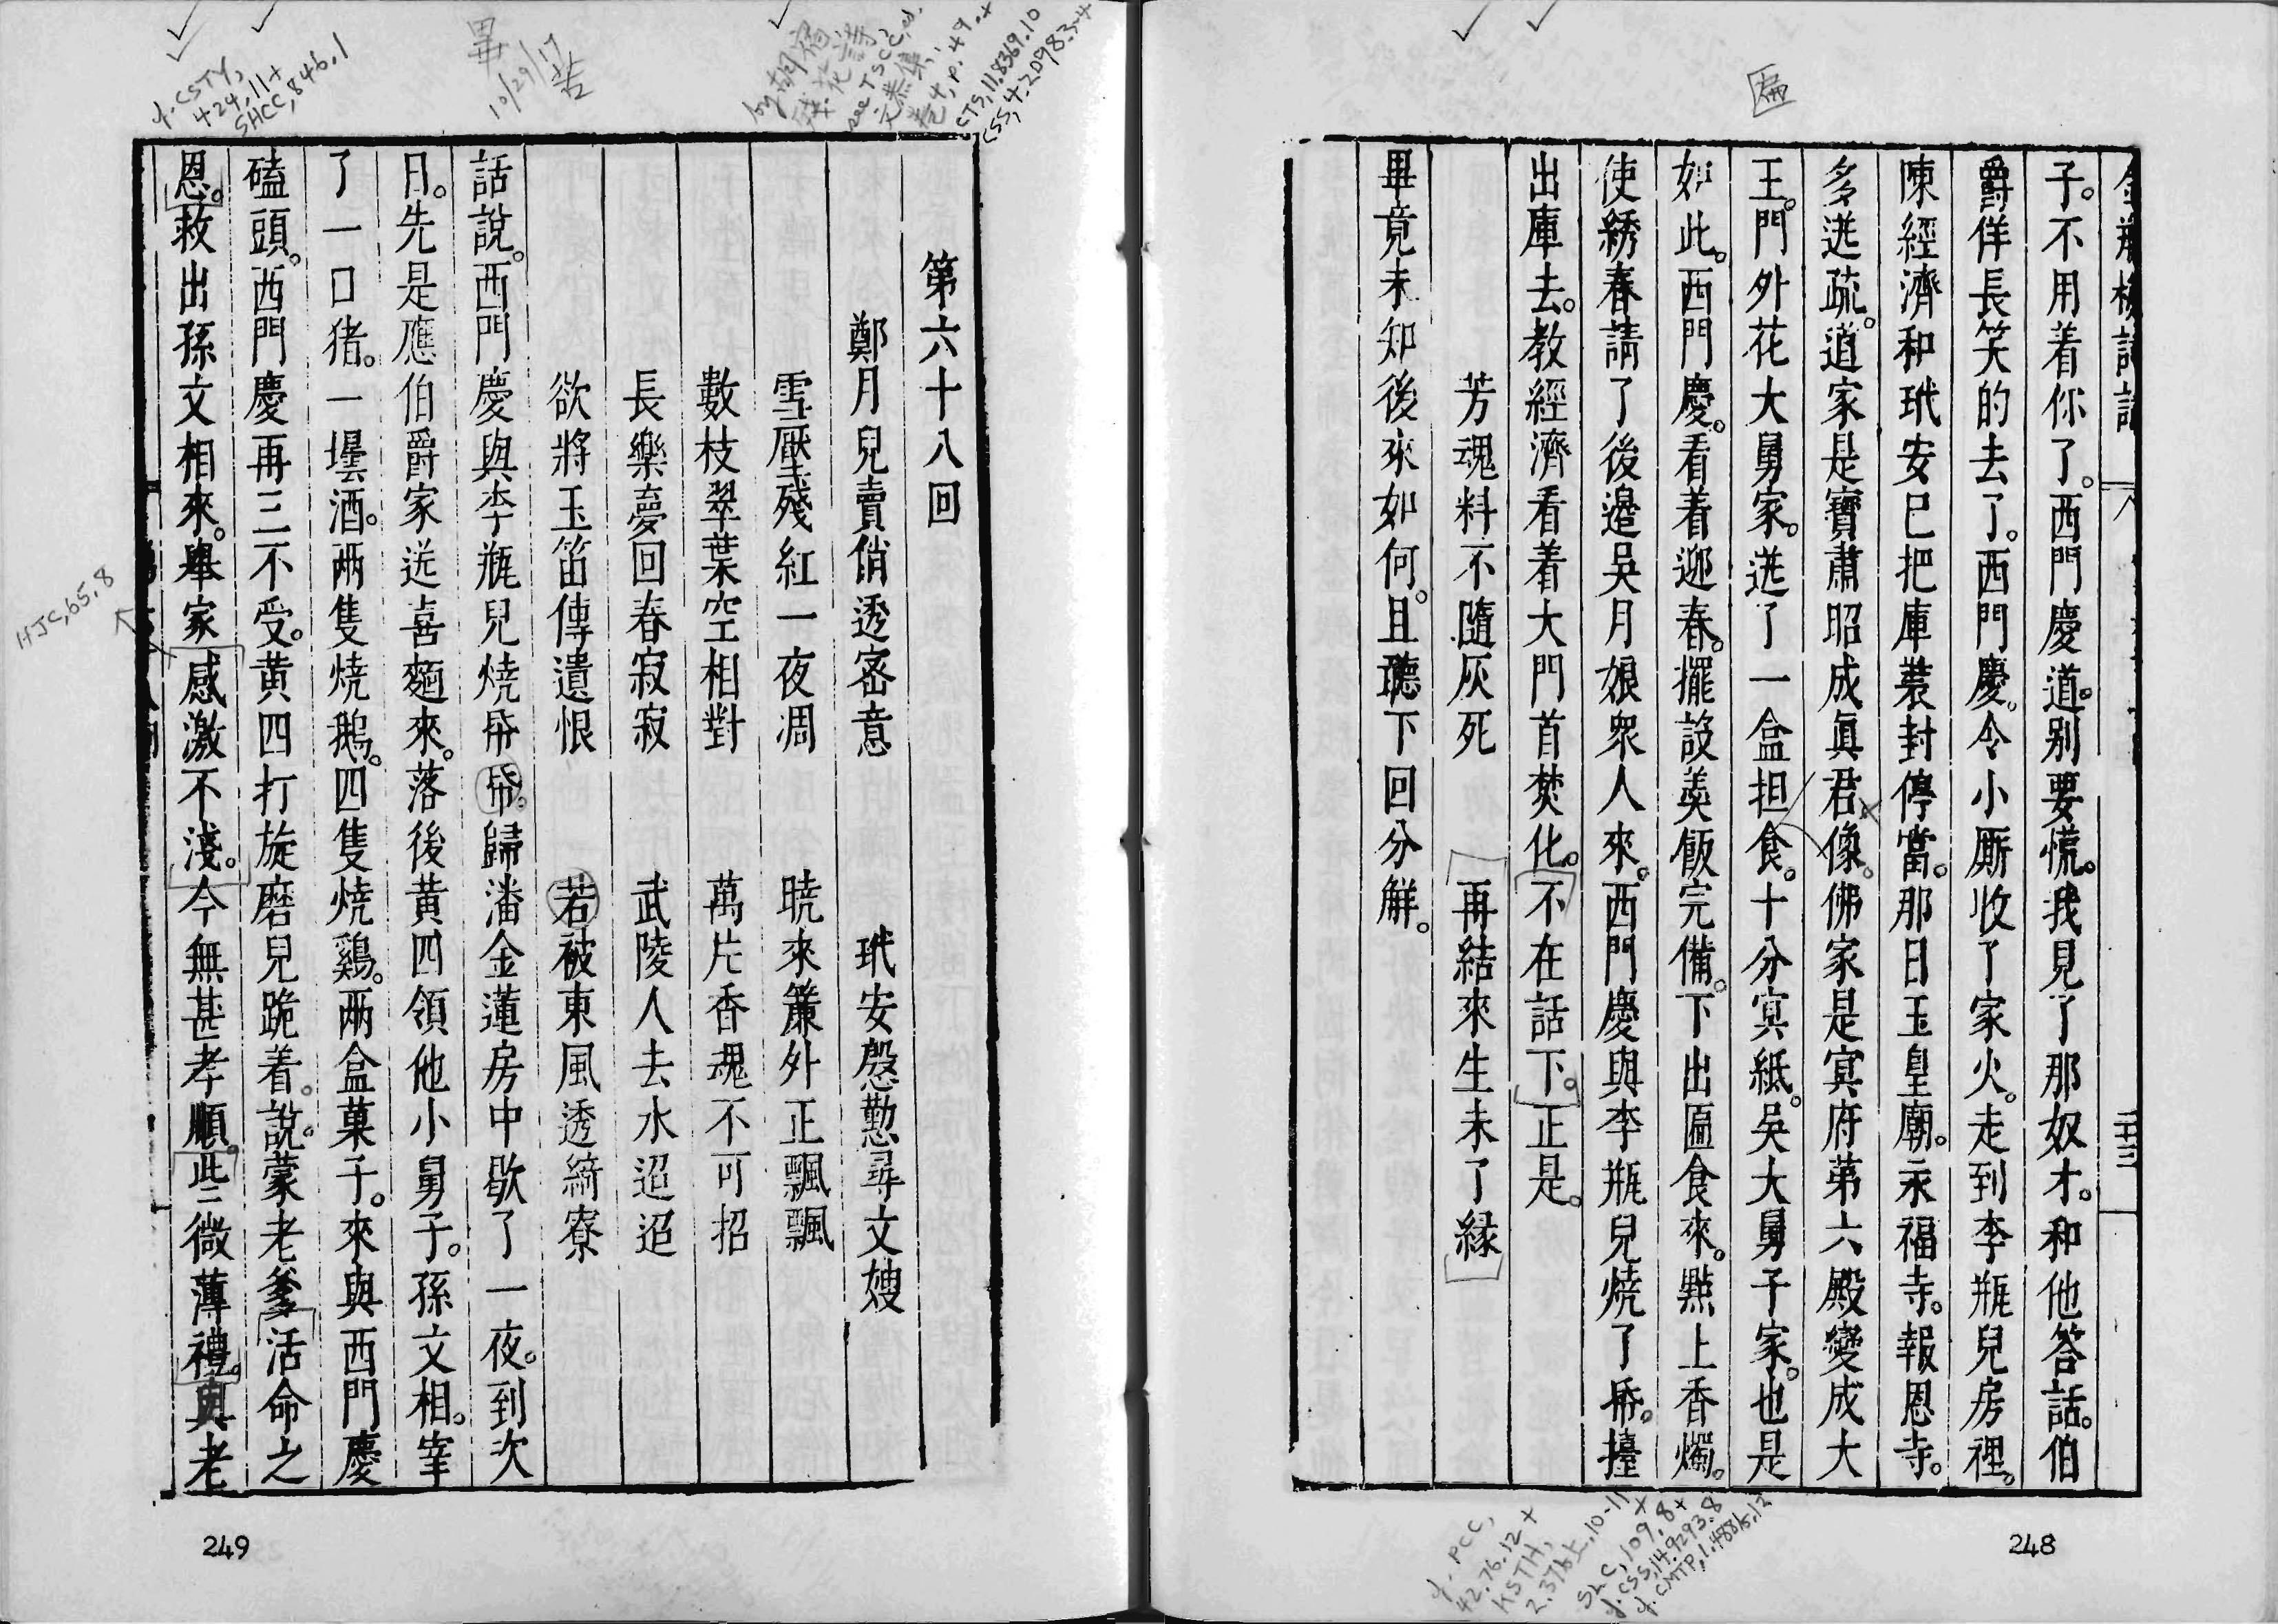 金瓶梅詞話 八 二十三
子。不用着你了。西門慶道。别要慌。我見了那奴才。和他答話。伯
爵佯長笑的去了。西門慶。令小厮收了家火。走到李瓶兒房裡。
陳經濟和玳安巳把庫裝封停當。那日玉皇廟。永福寺。報恩寺。
多送疏。道家是寶肅昭成眞君像。佛家是冥府第六殿變成大
王。門外花大舅家。送了一盒担食。十分冥紙。吳大舅子家。也是
如此。西門慶。看着迎春。擺設羮飯完備。下出匾食來。㸃上香燭。
使綉春請了後邉吳月娘衆人來。西門慶與李瓶兒燒了帋。擡
出庫去。教經濟看着大門首焚化。不在話下。正是。
芳魂料不隨灰死 再結來生未了縁
畢竟未知後來如何。且聽下回分觧。
248
匾
cf. PCC,
42.76.12+
KSTH,
2.37b上,10-11
SLC,109.8+
cf. CSS,14.9293.8
cf. CMTP,1.4881.5,12
第六十八回
鄭月兒賣俏透宻意 玳安慇懃尋文嫂
雪壓殘紅一夜凋 暁來簾外正飄飄
數枝翠葉空相對 萬片香魂不可招
長樂夢回春寂寂 武陵人去水迢迢
欲將玉笛傳遺恨 若被東風透綺寮
話說。西門慶與李瓶兒燒帋帋。歸潘金蓮房中歇了一夜。到次
日。先是應伯爵家送喜麵來。落後黄四領他小舅子。孫文相。宰
了一口猪。一壜酒。兩隻燒鵝。四隻燒鷄。兩盒菓子。來與西門慶
磕頭。西門慶再三不受。黄四打旋磨兒跪着。說。蒙老爹活命之
恩。救出孫文相來。舉家感激不淺。今無甚孝順。些微薄禮。與老
249
by 胡宿
殘花詩
see TSCC, ed.
文恭集,
卷4, p.49.+
CTS,11.8369.10
CSS,4.2098.3-4
畢
10/29/17
cf. CSTY,
424,11+
SHCC,846.1
HJC,65.8